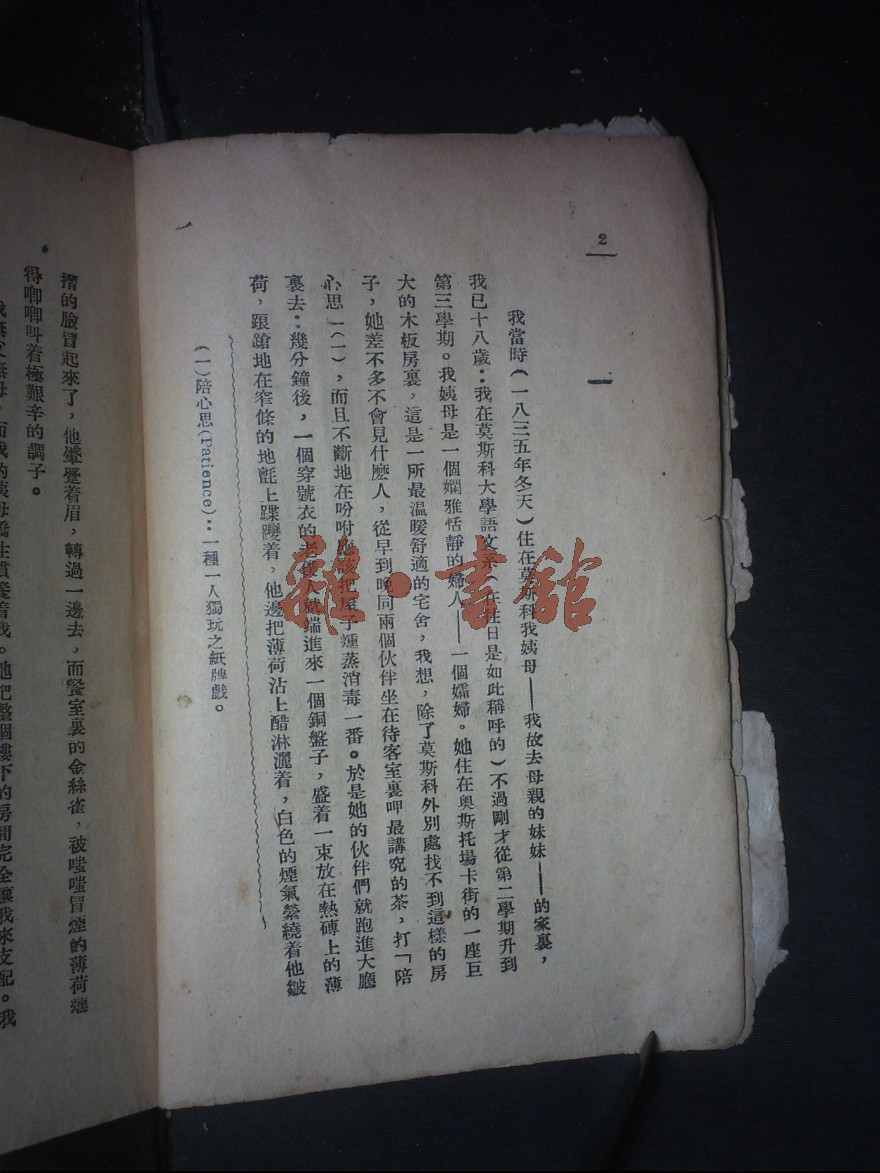 2
一
我當時(一八三五年冬天)住在莫斯科我姨母——我故去母親的妹妹——的家裏，
我已十八歲：我在莫斯科大學語文系(在往日是如此稱呼的)不過剛才從第二學期升到
第三學期。我姨母是一個嫻雅恬靜的婦人——一個孀婦。她住在奧斯托場卡街的一座巨
大的木板房裏，這是一所最温暖舒適的宅舍，我想，除了莫斯科外別處找不到這樣的房
子，她差不多不會見什麽人，從早到晚同兩個伙伴坐在待客室裏呷最講究的茶，打「陪
心思」(一)，而且不斷地在吩咐應該把屋子燻蒸消毒一番。於是她的伙伴們就跑進大廳
裏去：幾分鐘後，一個穿號衣的老僕人就端進來一個銅盤子，盛着一束放在熱磚上的薄
荷，踉蹌地在窄條的地氈上蹀躞着，他邊把薄荷沾上醋淋灑着，白色的煙氣縈繞着他皺
(一)陪心思(Patience)：一種一人獨玩之紙牌戲。
一
摺的臉冒起來了，他顰蹙着眉，轉過一邊去，而餐室裏的金絲雀，被嗤嗤冒煙的薄荷
得唧唧叫着極艱辛的調子。
我無父無母，而我的姨母嬌生慣養着我。她把整個樓下的房間完全讓我來支配。我
雜·書館